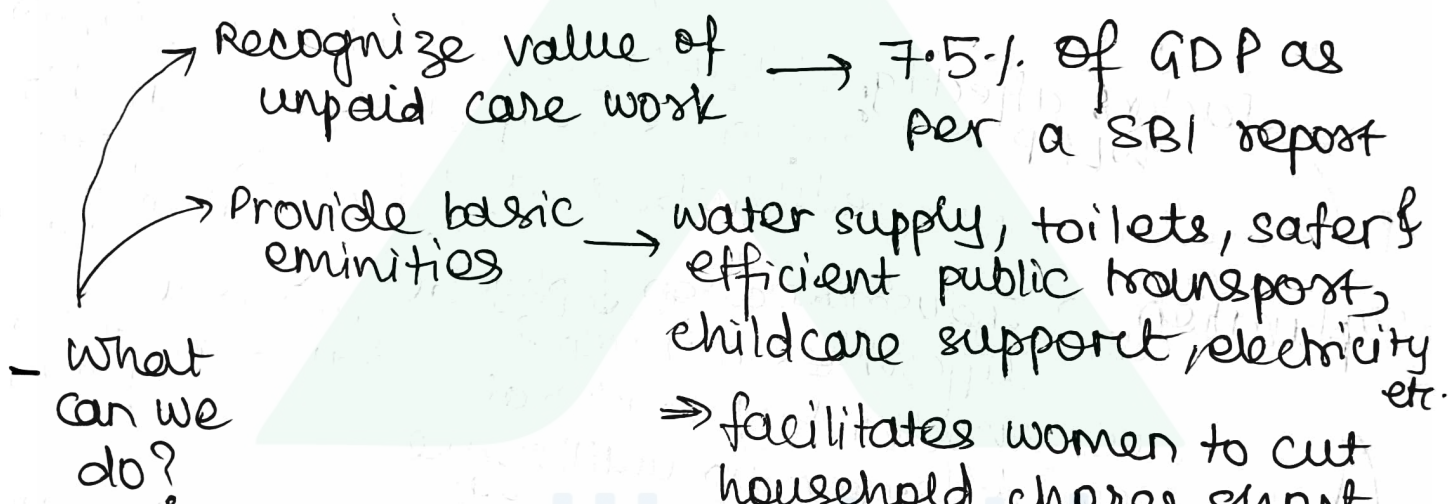 Recognize value of
unpaid care work → 7.5% of GDP as
per a SBI report
Provide basic
eminities → water supply, toilets, safer &
efficient public transport,
childcare supporct, electricity
etc.
- What
can we
do?
⇒ facilitates women to cut
household chores short